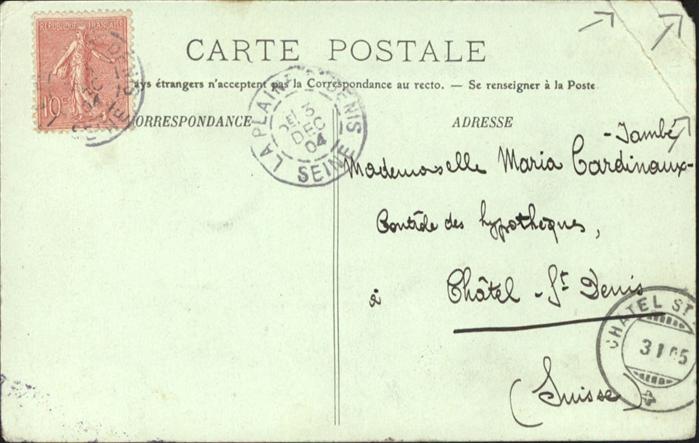 RÉPUBLIQUE FRANÇAISE
10c
CARTE POSTALE
pays étrangers n'acceptent pas la Correspondance au recto. — Se renseigner à la Poste
CORRESPONDANCE
ADRESSE
LA PLAINE ST DENIS
3
DEC
04
SEINE
-Jambé
Mademoiselle Maria Cardinaux-
Contrôle des hypothèques,
à Châtel-St Denis
(Suisse)
CHATEL ST
3 I 05